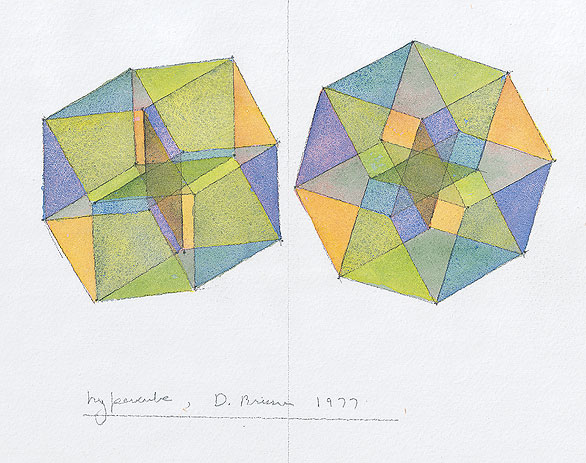 hypercube, D. Brisson 1977